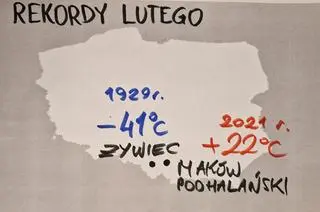 REKORDY LUTEGO
1929r.
-41°C
ŻYWIEC
2021 r.
+22°C
MAKÓW
PODHALAŃSKI